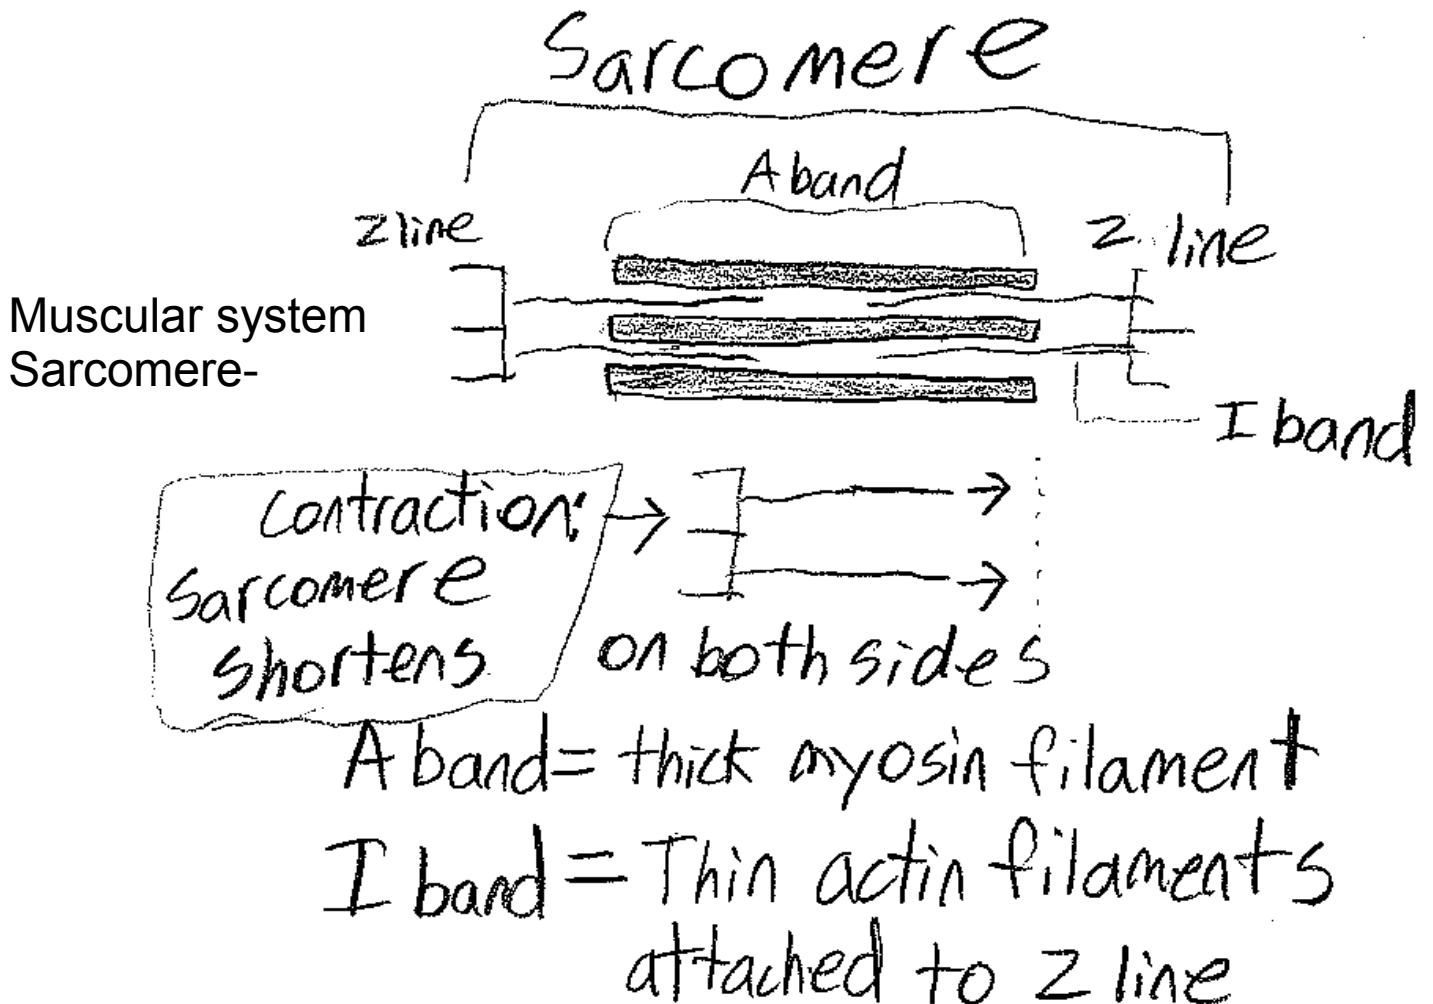 Sarcomere
A band
Z line
Z line
Muscular system
Sarcomere-
I band
Contraction:
Sarcomere
shortens
on both sides
A band = thick myosin filament
I band = Thin actin filaments
attached to Z line